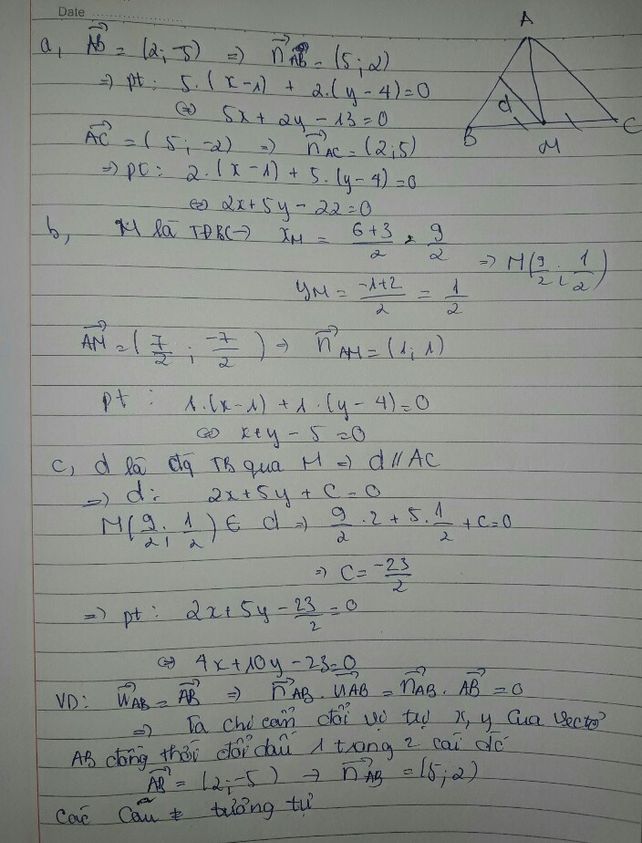 Date
a, AB→ = (2; -5) => n→AB = (5; 2)
=> pt: 5.(x-1) + 2.(y-4)=0
<=> 5x + 2y - 13 = 0
AC→ = (5; -2) => n→AC = (2;5)
=> pt: 2.(x-1) + 5.(y-4)=0
<=> 2x+5y-22=0
A
d
B
M
C
b, M là TĐBC -> xM = (6+3)/2 = 9/2
=> M(9/2; 1/2)
yM = (-1+2)/2 = 1/2
AM→ = (7/2; -7/2) => n→AM = (1; 1)
pt : 1.(x-1) + 1.(y-4)=0
<=> x+y-5=0
c, d là đg TB qua M => d // AC
=> d: 2x+5y + C = 0
M(9/2; 1/2) ∈ d => 9/2 . 2 + 5. 1/2 + C=0
=> C = -23/2
=> pt: 2x+5y - 23/2 = 0
<=> 4x+10y-23=0
VD: u→AB = AB→ => n→AB . u→AB = n→AB . AB→ = 0
=> Ta chỉ cần đổi vị trí x, y của vectơ
AB đồng thời đổi dấu 1 trong 2 cái đó
AB→ = (2; -5) -> n→AB = (5; 2)
Các câu ≠ tương tự